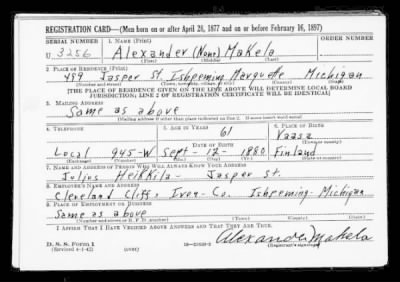 REGISTRATION CARD—(Men born on or after April 28, 1877 and on or before February 16, 1897)
SERIAL NUMBER 1. NAME (Print) ORDER NUMBER
U 3256 Alexander (None) Makela
(First) (Middle) (Last)
2. PLACE OF RESIDENCE (Print)
459 Jasper St. Ishpeming Marquette Michigan
(Number and street) (Town, township, village, or city) (County) (State)
[THE PLACE OF RESIDENCE GIVEN ON THE LINE ABOVE WILL DETERMINE LOCAL BOARD
JURISDICTION; LINE 2 OF REGISTRATION CERTIFICATE WILL BE IDENTICAL]
3. MAILING ADDRESS
Same as above
[Mailing address if other than place indicated on line 2. If same insert word same]
4. TELEPHONE 5. AGE IN YEARS 6. PLACE OF BIRTH
61 Vaasa
DATE OF BIRTH (Town or county)
Local 945-W Sept-12-1880 Finland
(Exchange) (Number) (Mo.) (Day) (Yr.) (State or country)
7. NAME AND ADDRESS OF PERSON WHO WILL ALWAYS KNOW YOUR ADDRESS
Julius Heikkila - Jasper St.
8. EMPLOYER'S NAME AND ADDRESS
Cleveland Cliffs Iron-Co. Ishpeming-Michigan
9. PLACE OF EMPLOYMENT OR BUSINESS
Same as above
(Number and street or R. F. D. number) (Town) (County) (State)
I AFFIRM THAT I HAVE VERIFIED ABOVE ANSWERS AND THAT THEY ARE TRUE.
D. S. S. Form 1
(Revised 4-1-42) (over) Alexander Makela
(Registrant's signature)